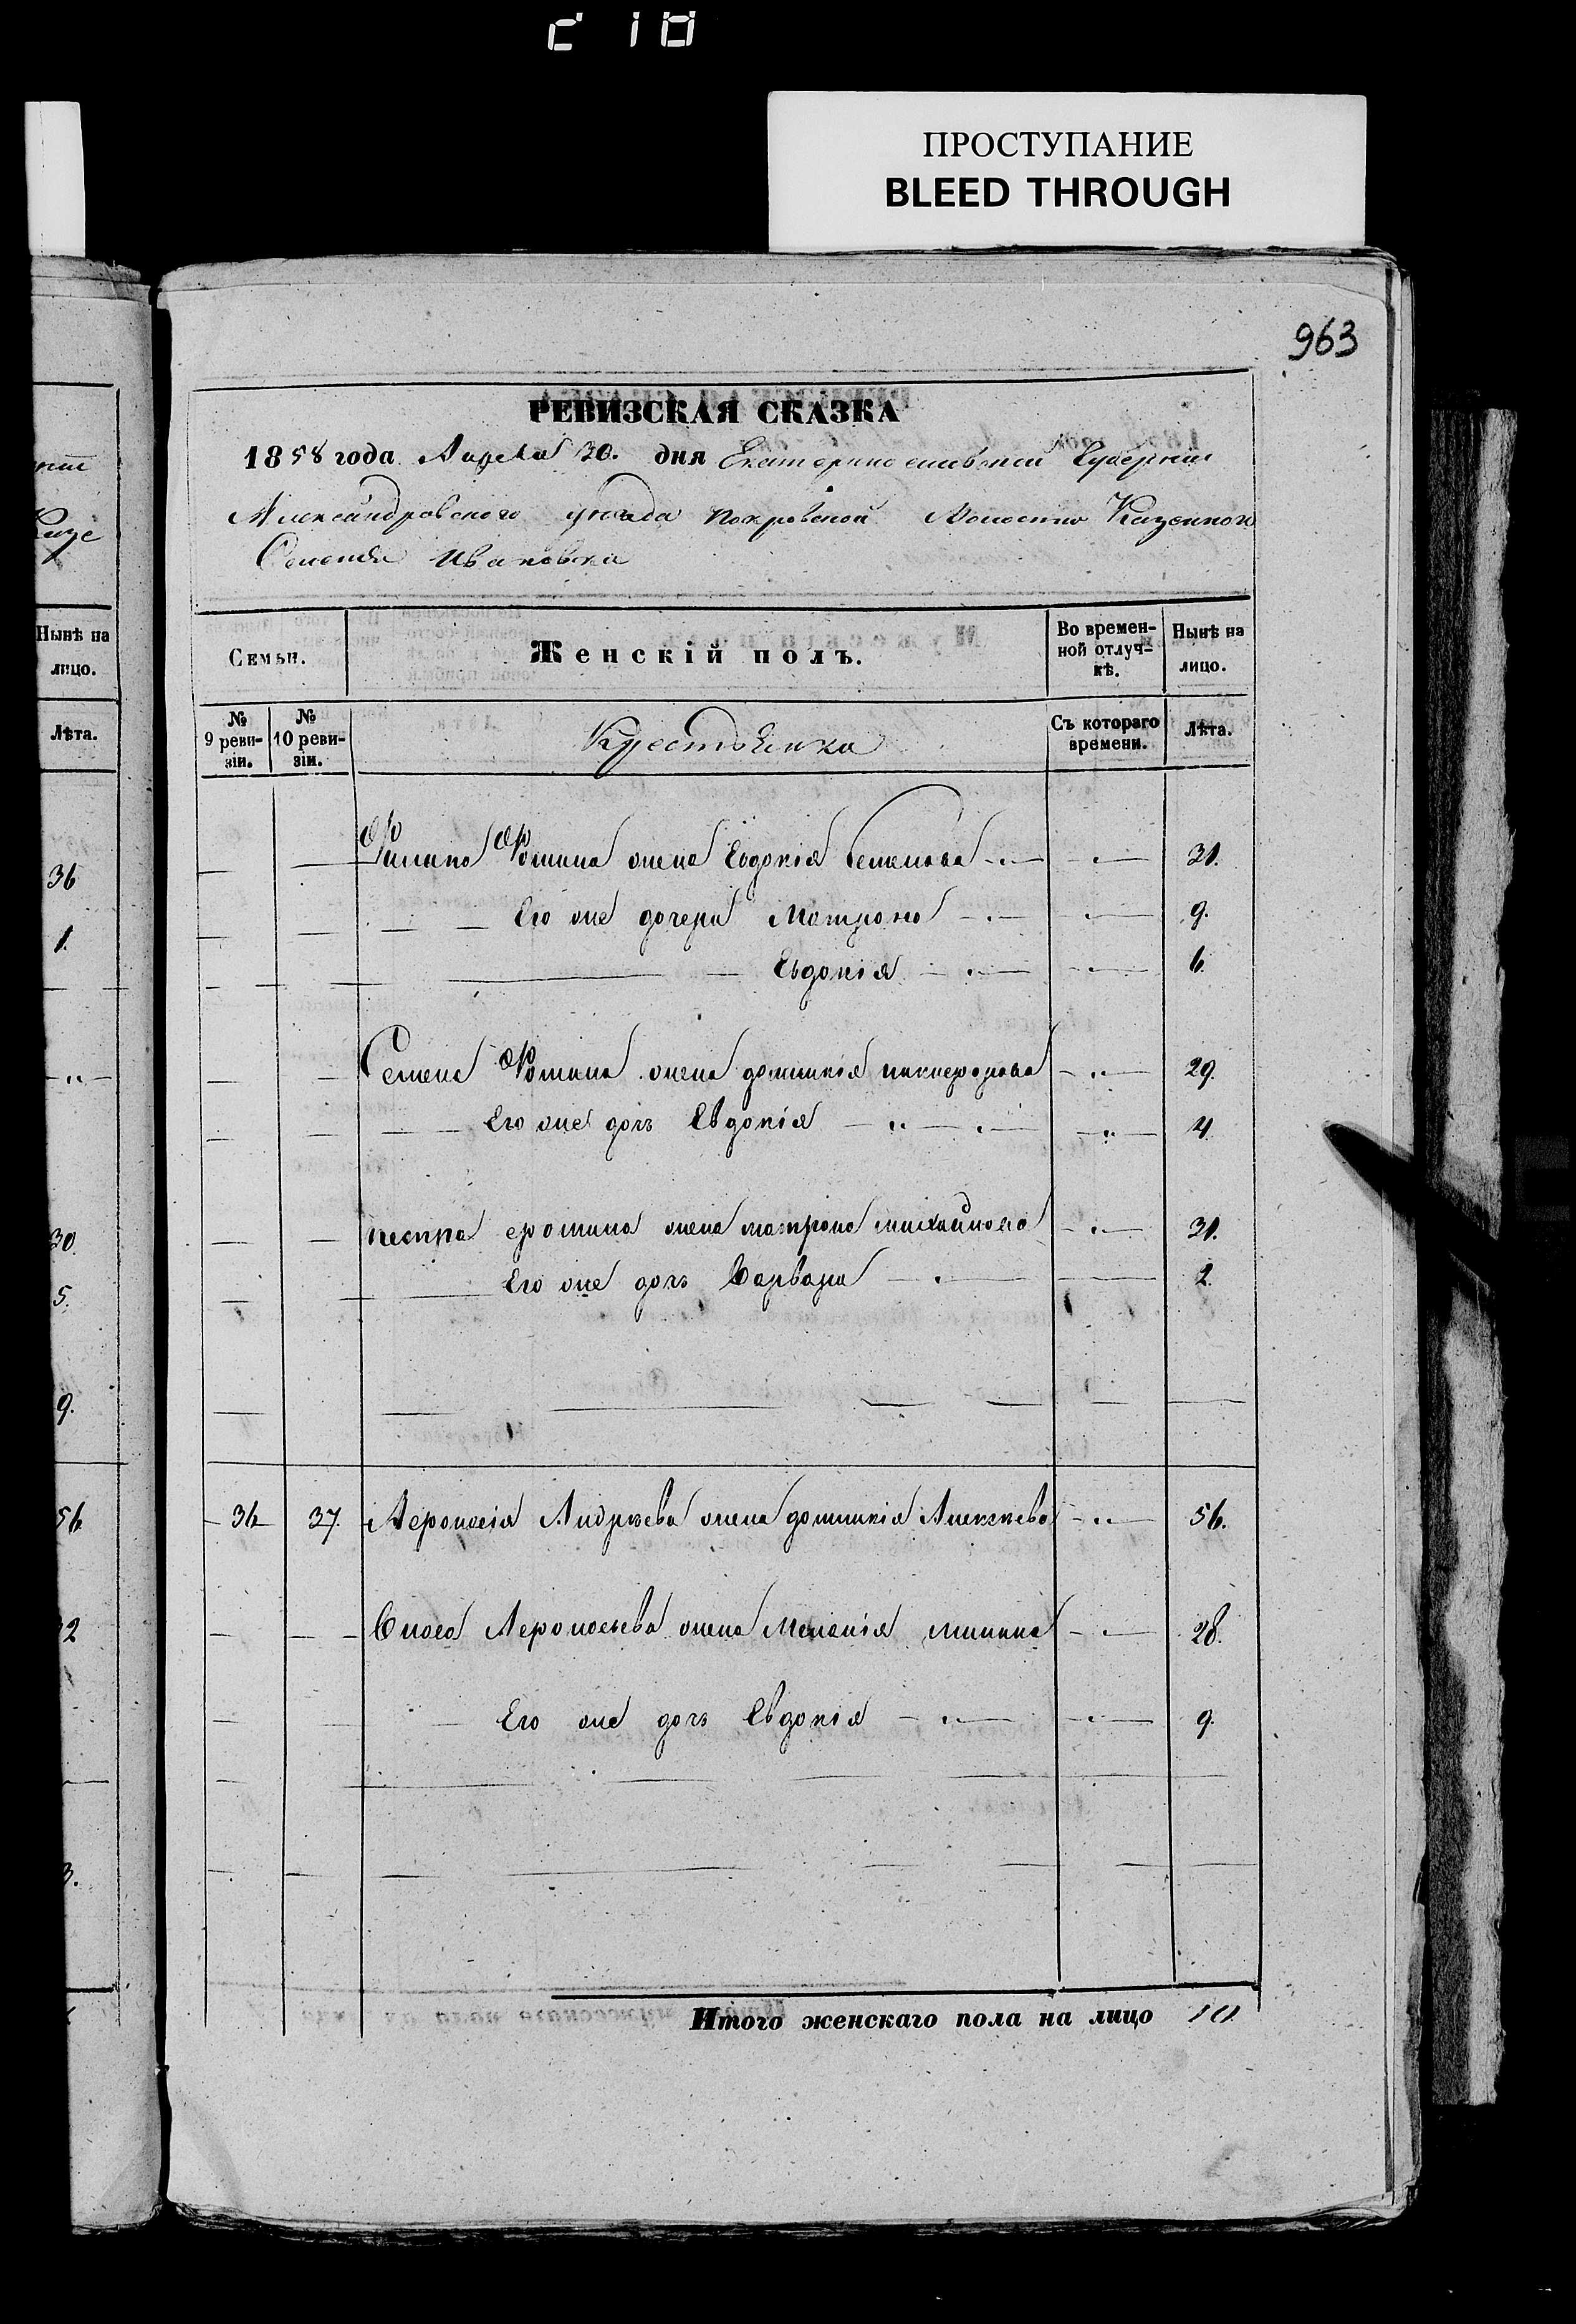 C 10
ПРОСТУПАНИЕ
BLEED THROUGH
963
РЕВИЗСКАЯ СКАЗКА
1858 года Апреля 30. дня Екатеринославской Губернии
Александровского уезда Покровской Волости Казенного
Селения Ивановка
Семьи. Женскій полъ. Во времен-ной отлуч-кѣ. Нынѣ на лицо.
№ 9 реви-зіи. № 10 реви-зіи. Крестьянка Съ котораго времени. Лѣта.
Филипа Фомина жена Евдокія Семенова 31.
Его же дочери Матрона 9.
Евдокія 6.
Семена Фомина жена домникія никифорова 29.
Его же дочь Евдокія 4.
петра фомина жена матрона михайлова 31.
Его же дочь Варвара 2.
36 37. Жена домникія Алексѣева 56.
жена Меланія минина 28.
Его же дочь Евдокія 9.
Итого женскаго пола на лицо 10
Нынѣ на
лицо.
Лѣта.
36
1.
30.
5.
9.
56